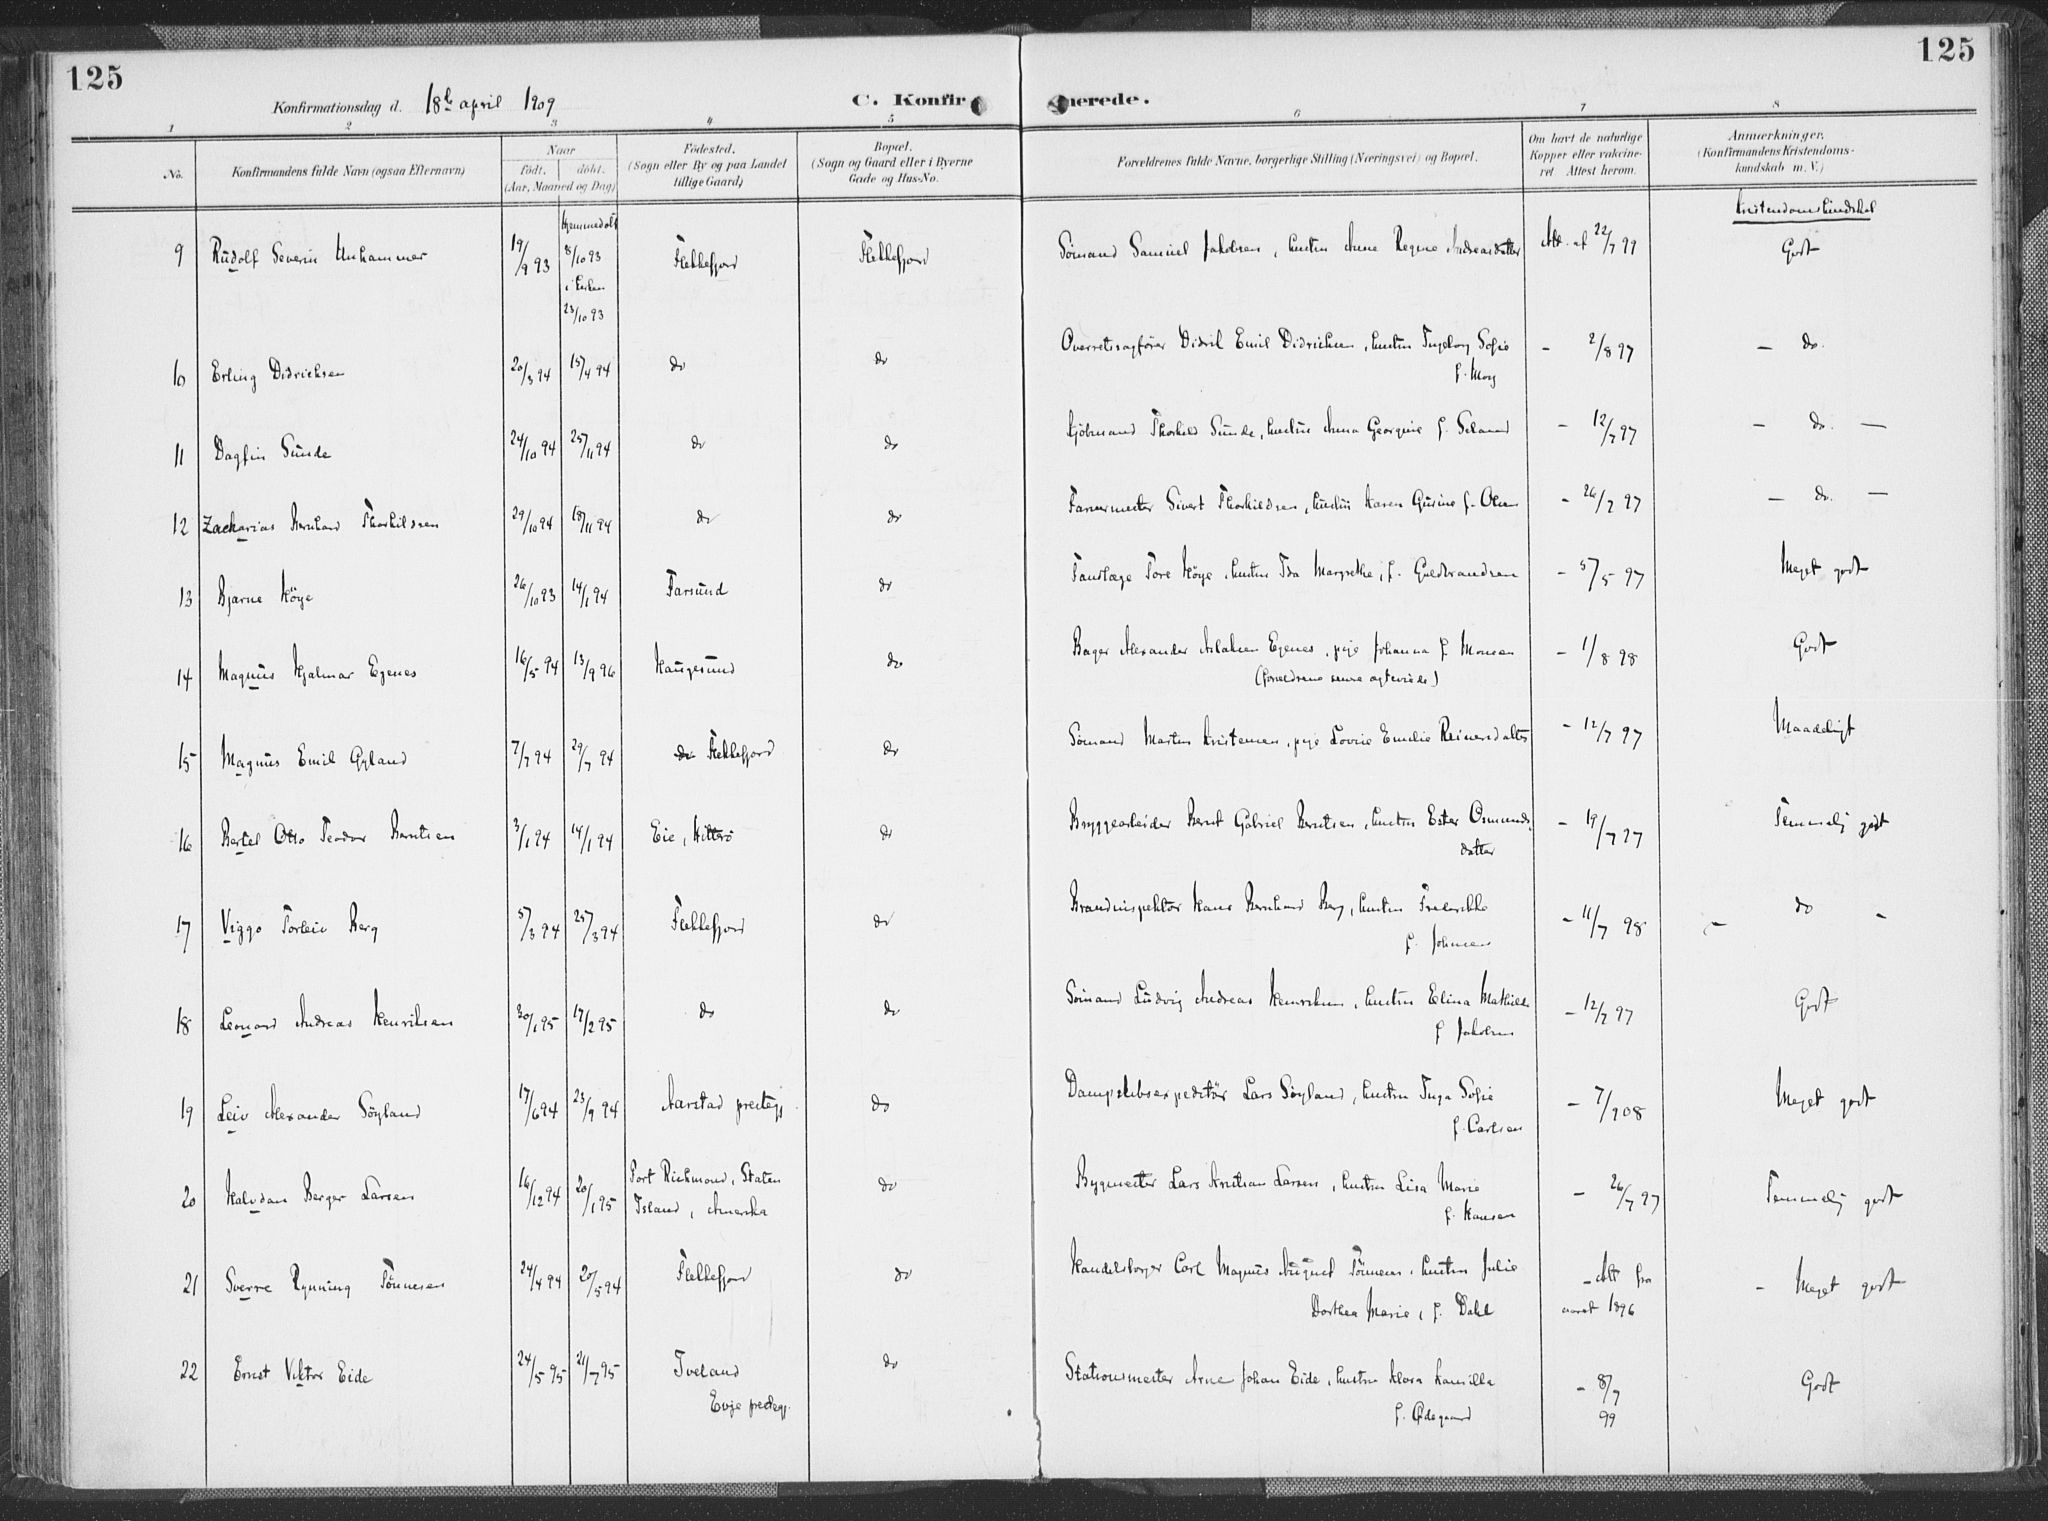 125
125
Konfirmationsdag d. 18de april 1909
C. Konfirmerede.
1 2 3 4 5 6 7 8
No.
Konfirmandens fulde Navn (ogsaa Efternavn)
Naar
födt. döbt.
(Aar, Maaned og Dag)
Födested.
(Sogn eller By og paa Landet
tillige Gaard)
Bopæl.
(Sogn og Gaard eller i Byerne
Gade og Hus-No.
Forældrenes fulde Navne, borgerlige Stilling (Næringsvei) og Bopæl.
Om havt de naturlige
Kopper eller vakcine-
ret Attest herom.
Anmærkninger.
(Konfirmandens Kristendoms-
kundskab m. V.)
Kristendomskundskab
9 Rudolf Severin Unhammer 19/9 93 Hjemmedöbt 8/10 93 i Kirken 23/10 93 Flekkefjord Flekkefjord Sömand Samuel Jakobsen, hustru Anne Regine Andreasdatter Att. af 22/7 99 Godt
10 Erling Didrichsen 20/3 94 15/4 94 do do Overretssagförer Didrik Emil Didrichsen, hustru Ingeborg Sofie
f. Moy - 2/8 97 - do.
11 Dagfin Sunde 24/10 94 25/11 94 do do Kjöbmand Thorkild Sunde, hustru Anna Georgine f. Seland - 12/7 97 - do. -
12 Zacharias Bernhard Thorkildsen 29/10 94 18/11 94 do do Farvermester Sivert Thorkildsen, hustru Karen Gurine f. Olsen - 26/7 97 - do. -
13 Bjarne Köge 26/10 93 14/1 94 Farsund do Tandlæge Tore Köge, hustru Ida Margrethe, f. Guldbrandsen - 5/5 97 Meget godt
14 Magnus Hjalmar Egenes 16/5 94 13/9 96 Haugesund do Bager Alexander Aslaksen Egenes, pige Johanna f. Monsen
(forældrene senere ægteviede) - 1/8 98 Godt
15 Magnus Emil Gyland 7/7 94 29/7 94 do Flekkefjord do Sömand Martin Kristensen, pige Lovise Emilie Reinersdatter - 12/7 97 Maadeligt
16 Bertel Otto Teodor Berntsen 3/1 94 14/1 94 Eie, Hitterö do Bryggearbeider Bernt Gabriel Berntsen, hustru Ester Osmunds-
datter - 19/7 97 Temmelig godt
17 Viggo Torleiv Berg 5/3 94 25/3 94 Flekkefjord do Brandinspektör Hans Bernhard Berg, hustru Frederikke
f. Johnsen - 11/7 98 - do -
18 Leonard Andreas Henriksen 30/1 95 17/2 95 do do Sömand Ludvig Andreas Henriksen, hustru Elina Mathilde
f. Jakobsen - 12/7 97 Godt
19 Leiv Alexander Söyland 17/6 94 23/9 94 Aarstad prestegj. do Dampskibsexpeditör Lars Söyland, hustru Inga Sofie
f. Carlsen - 7/9 08 Meget godt
20 Halvdan Berger Larsen 16/12 94 20/1 95 Port Richmond, Staten
Island, Amerika do Bygmester Lars Kristian Larsen, hustru Lisa Marie
f. Hansen - 26/7 97 Temmelig godt
21 Sverre Rynning Tönnesen 24/4 94 20/5 94 Flekkefjord do Handelsborger Carl Magnus August Tönnesen, hustru Julie
Dorthea Marie, f. Dahl - Att fra
aaret 1896 - Meget godt
22 Ernst Viktor Eide 24/5 95 21/7 95 Iveland
Evje prestegj. do Stationsmester Arne Johan Eide, hustru Klara Kamilla
f. Ödegaard - 8/7
99 Godt